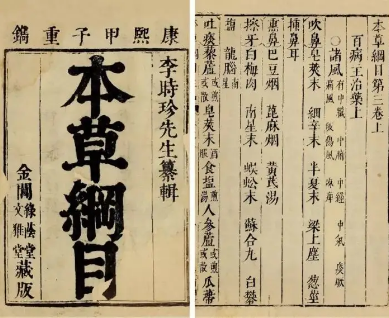 康熙甲子重鐫
李時珍先生纂輯
本草綱目
金閶綠蔭堂
文雅堂藏版
本草綱目第三卷上
百病主治藥上
○諸風 有中臟 中腑 中經 中氣 痰厥
痛風 破傷風 麻痺
吹鼻 皂莢末 細辛末 半夏末 梁上塵 葱莖
插鼻耳
熏鼻 巴豆烟 蓖麻烟 黃芪湯
擦牙 白梅肉 南星末 蜈蚣末 蘇合丸 白礬
鹽 龍腦
南星
吐痰 藜蘆 皂莢末 食鹽 人參蘆 瓜蒂